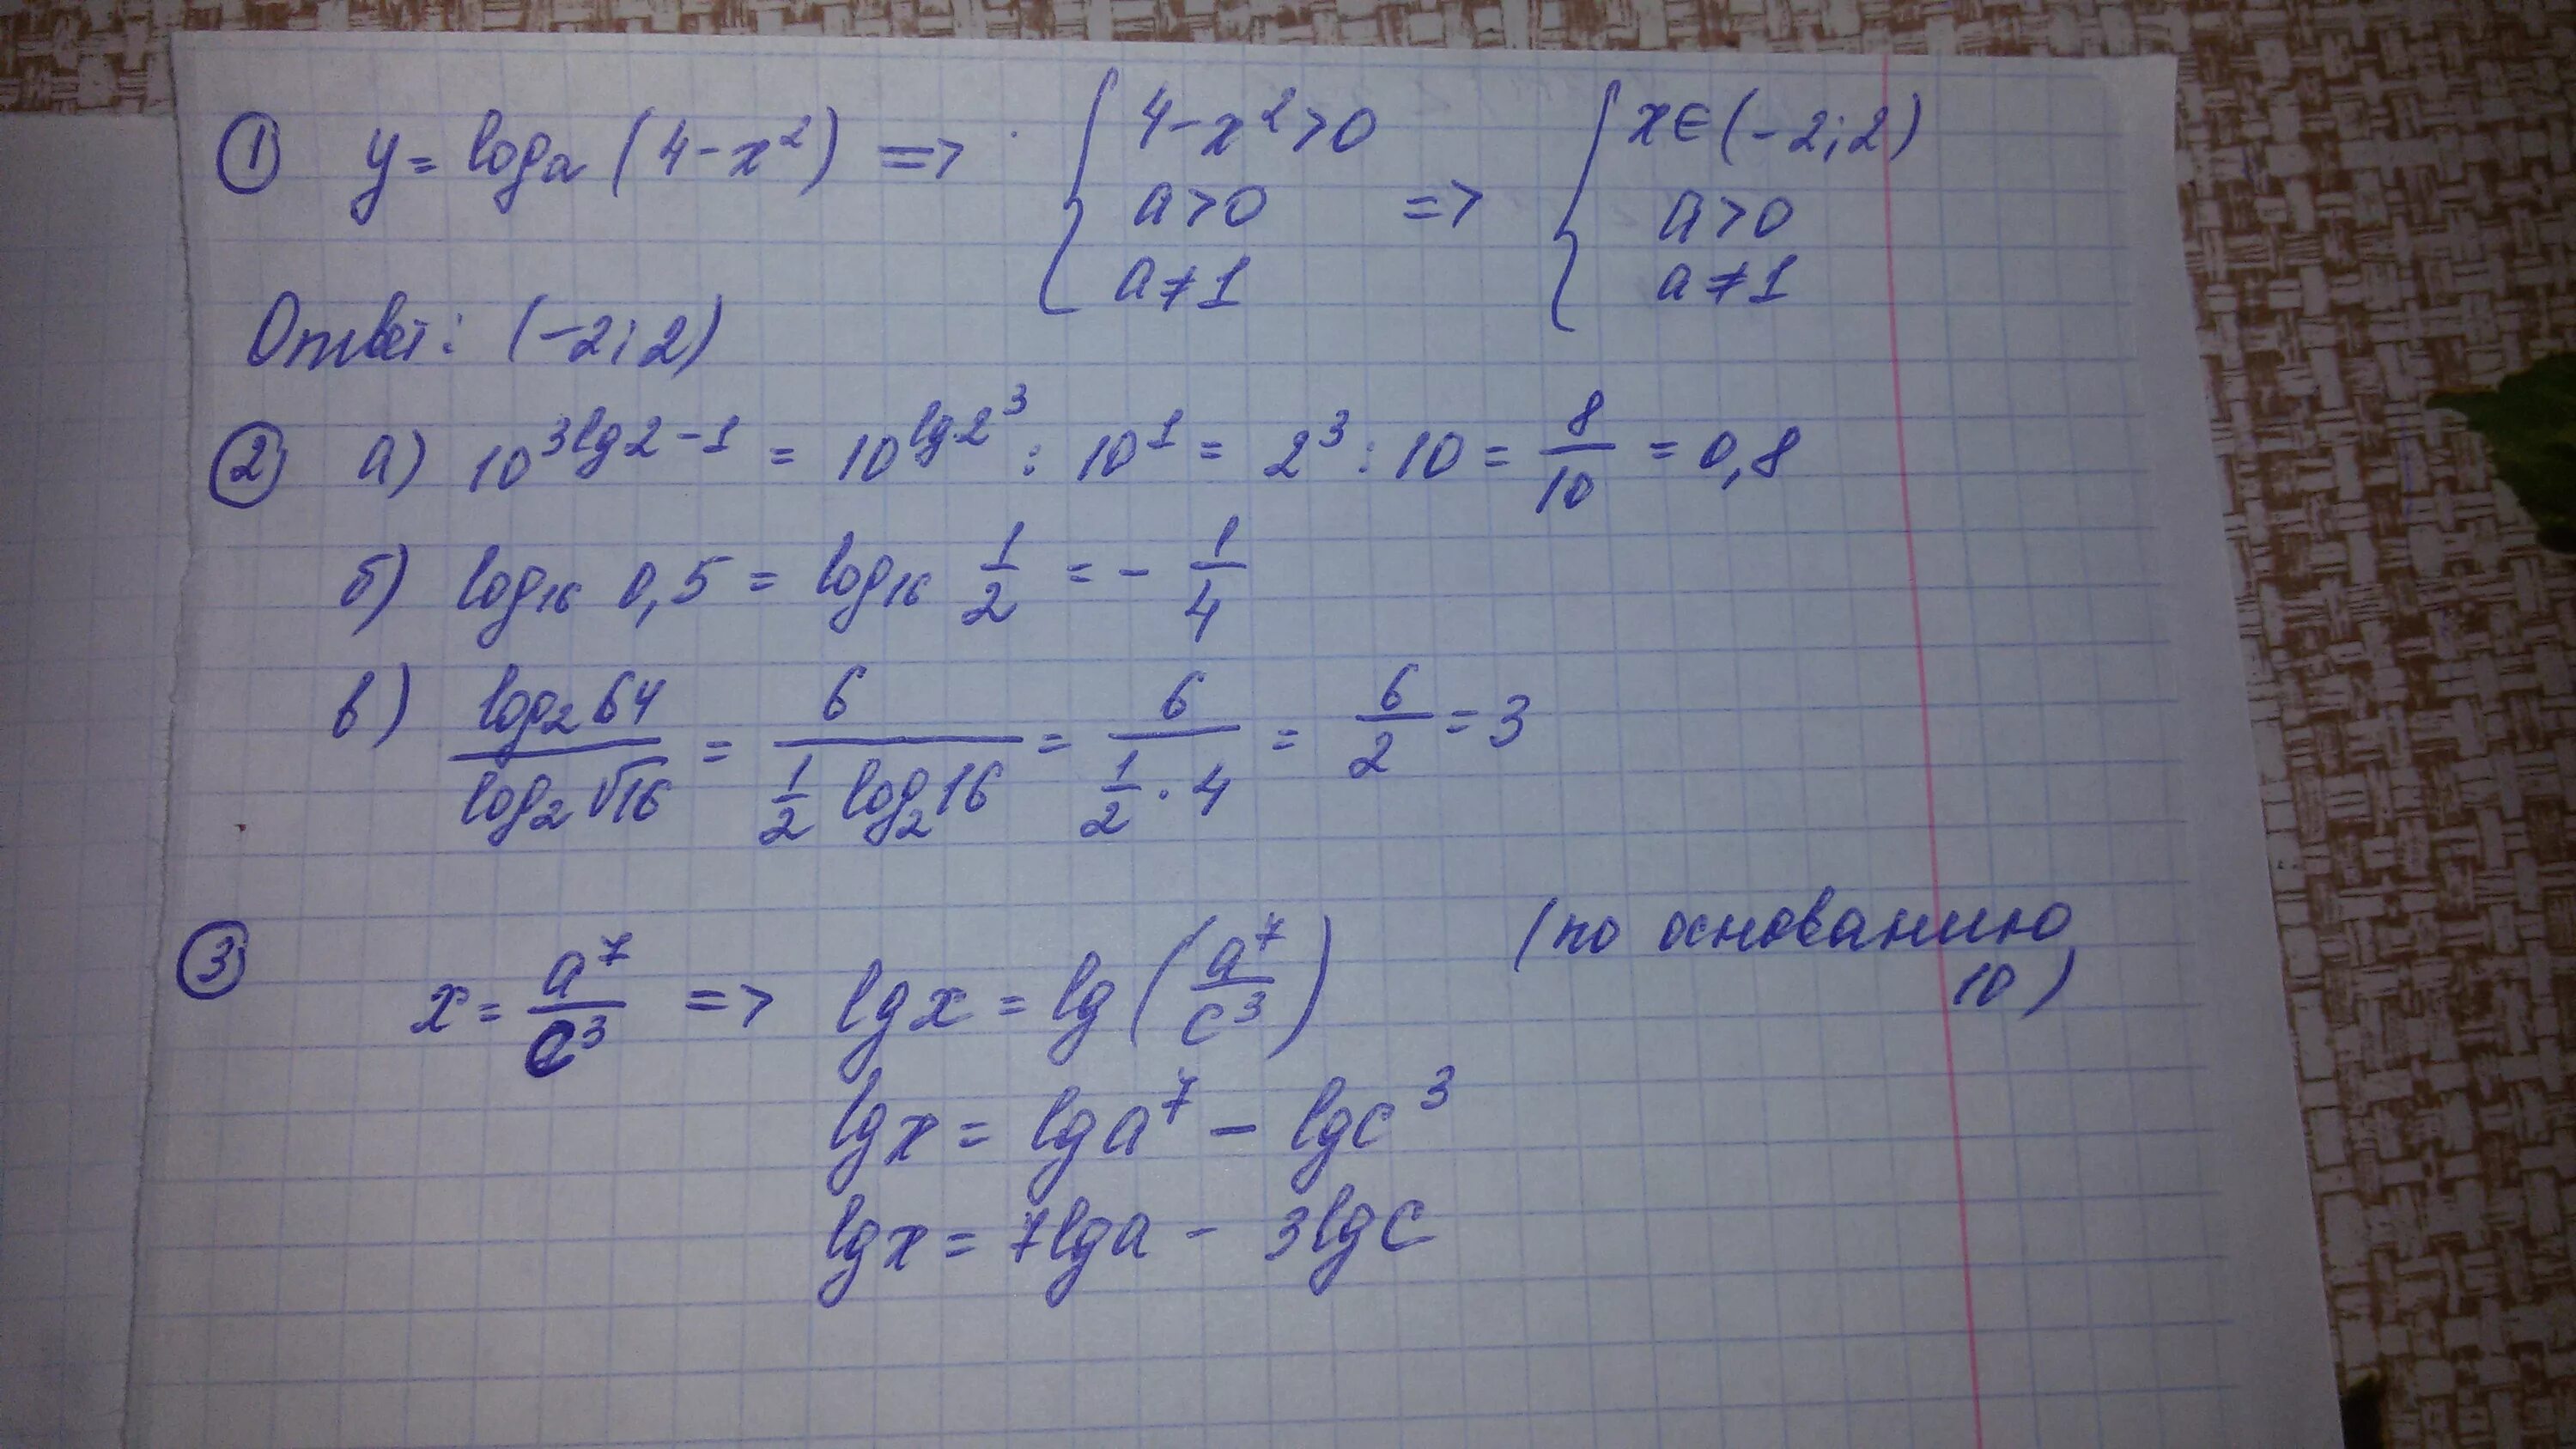 ① y = logₐ (4 - x²) => { 4 - x² > 0 ; a > 0 ; a ≠ 1 => { x ∈ (-2; 2) ; a > 0 ; a ≠ 1
Ответ: (-2; 2)
② а) 10^(3lg2 - 1) = 10^(lg 2³) : 10¹ = 2³ : 10 = 8/10 = 0,8
б) log₁₆ 0,5 = log₁₆ 1/2 = - 1/4
в) log₂ 64 / log₂ √16 = 6 / (1/2 log₂ 16) = 6 / (1/2 · 4) = 6/2 = 3
③ x = a⁷/c³ => lg x = lg (a⁷/c³) (по основанию 10)
lg x = lg a⁷ - lg c³
lg x = 7lg a - 3lg c